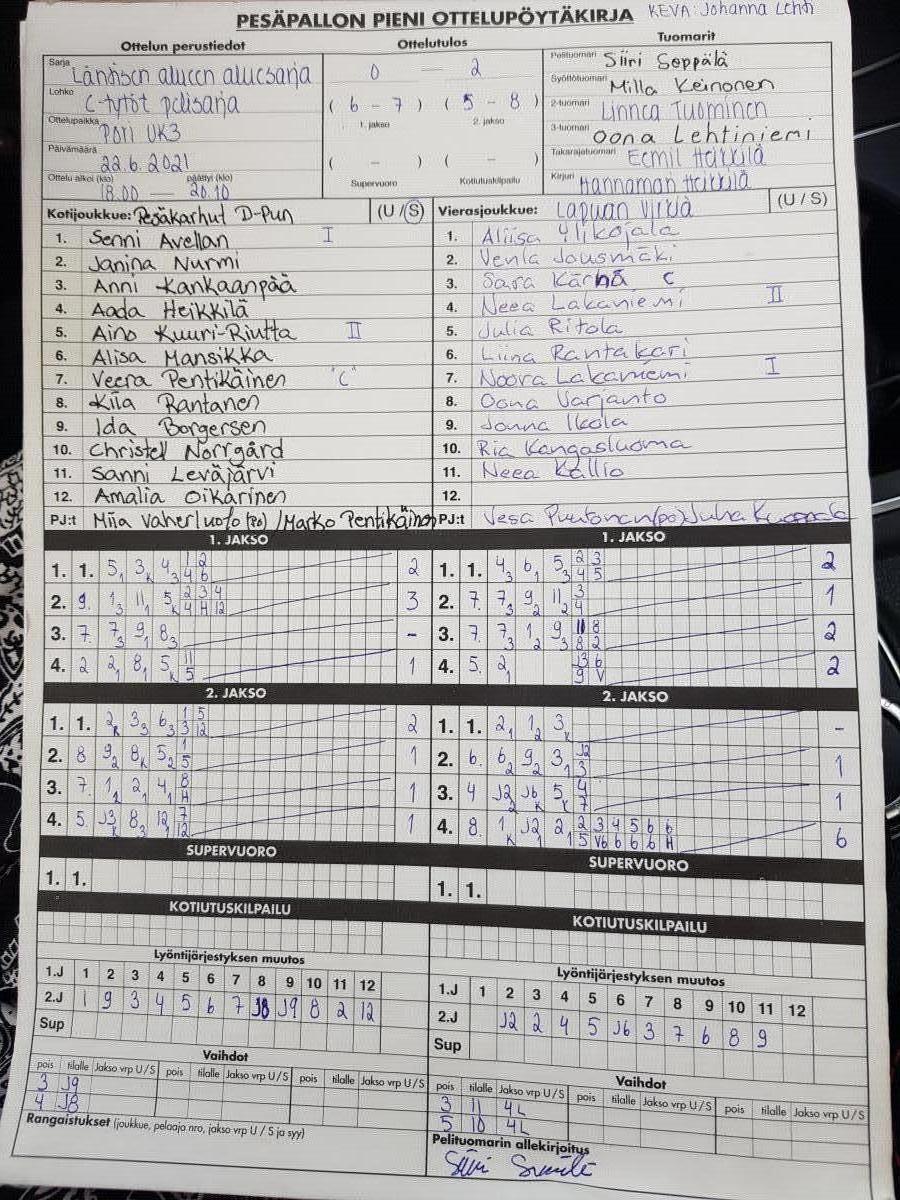 PESÄPALLON PIENI OTTELUPÖYTÄKIRJA KEVA: Johanna Lehti
Ottelun perustiedot Ottelutulos Tuomarit
Sarja Läntisen alueen aluesarja
Lohko C-tytöt pelisarja
Ottelupaikka Pori UK3
Päivämäärä 22.6.2021
Ottelu alkoi (klo) päättyi (klo)
18.00 — 20.10
0 — 2
( 6 - 7 ) ( 5 - 8 )
1. jakso 2. jakso
( - ) ( - )
Supervuoro Kotiutuskilpailu
Pelituomari Siiri Seppälä
Syöttötuomari Milla Keinonen
2-tuomari Linnea Tuominen
3-tuomari Oona Lehtiniemi
Takarajatuomari Eemil Heikkilä
Kirjuri Hannamari Heikkilä
Kotijoukkue: Pesäkarhut D-Pun (U/S)
1. Senni Avellan I
2. Janina Nurmi
3. Anni Kankaanpää
4. Aada Heikkilä
5. Aino Kuuri-Riutta II
6. Alisa Mansikka
7. Veera Pentikäinen "C"
8. Kiia Rantanen
9. Ida Borgersen
10. Christell Norrgård
11. Sanni Leväjärvi
12. Amalia Oikarinen
PJ:t Miia Vaherluoto (po) / Marko Pentikäinen
Vierasjoukkue: Lapuan Virkiä (U/S)
1. Aliisa Ylikojala
2. Venla Jousmäki
3. Sara Kärnä C
4. Neea Lakaniemi II
5. Julia Ritola
6. Liina Rantakari
7. Noora Lakaniemi I
8. Oona Varjanto
9. Jonna Ikola
10. Ria Kangasluoma
11. Neea Kallio
12.
PJ:t Vesa Puutonen (po) Juha
1. JAKSO 1. JAKSO
1. 1. 5 3 4 2
2. 9. 1 11 5 3
3. 7. 7 9 8 -
4. 2 2 8 5 1
1. 1. 4 6 5 2
2. 7. 7 9 11 1
3. 7. 7 1 9 2
4. 5. 2 2
2. JAKSO 2. JAKSO
1. 1. 2 3 6 2
2. 8 9 8 5 1
3. 7. 1 2 4 1
4. 5. J3 8 12 1
1. 1. 2 1 3 -
2. 6. 6 9 3 1
3. 4 J2 J6 5 1
4. 8. 1 J2 2 6
SUPERVUORO SUPERVUORO
1. 1. 1. 1.
KOTIUTUSKILPAILU KOTIUTUSKILPAILU
Lyöntijärjestyksen muutos
1.J 1 2 3 4 5 6 7 8 9 10 11 12
2.J 1 9 3 4 5 6 7 J8 J9 8 2 12
Sup
Vaihdot
pois tilalle Jakso vrp U/S pois tilalle Jakso vrp U/S pois tilalle Jakso vrp U/S
3 J9
4 J8
Rangaistukset (joukkue, pelaaja nro, jakso vrp U / S ja syy)
Lyöntijärjestyksen muutos
1.J 1 2 3 4 5 6 7 8 9 10 11 12
2.J J2 2 4 5 J6 3 7 6 8 9
Sup
Vaihdot
pois tilalle Jakso vrp U/S pois tilalle Jakso vrp U/S pois tilalle Jakso vrp U/S
3 11 4L
5 10 4L
Pelituomarin allekirjoitus